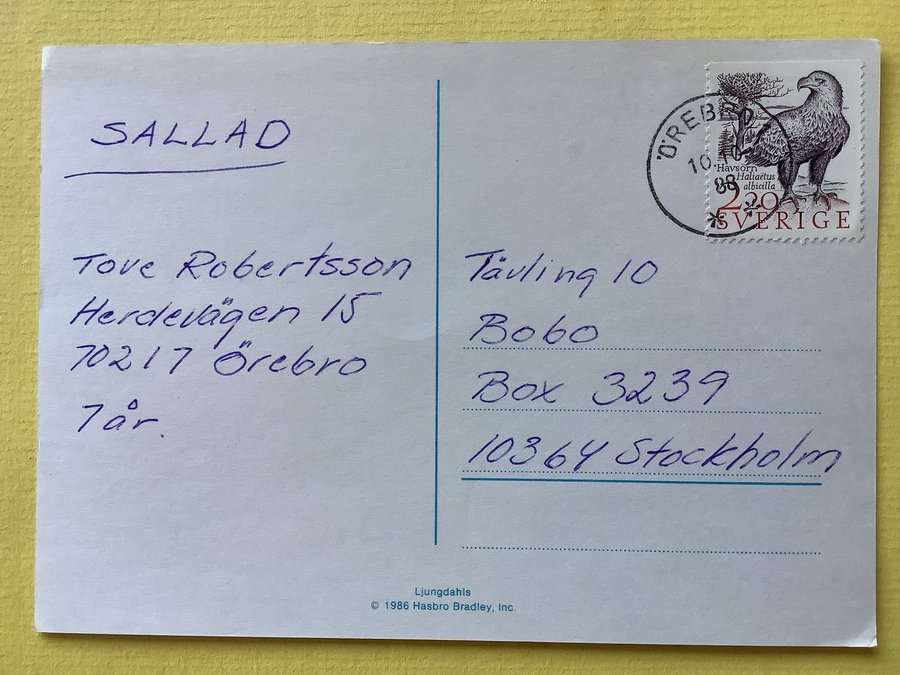 SALLAD
Tove Robertsson
Herdevägen 15
70217 Örebro
7 år.
ÖREBRO
10.10
88
Havsörn
Haliaëtus
albicilla
2.20
SVERIGE
Tävling 10
Bobo
Box 3239
10364 Stockholm
Ljungdahls
© 1986 Hasbro Bradley, Inc.